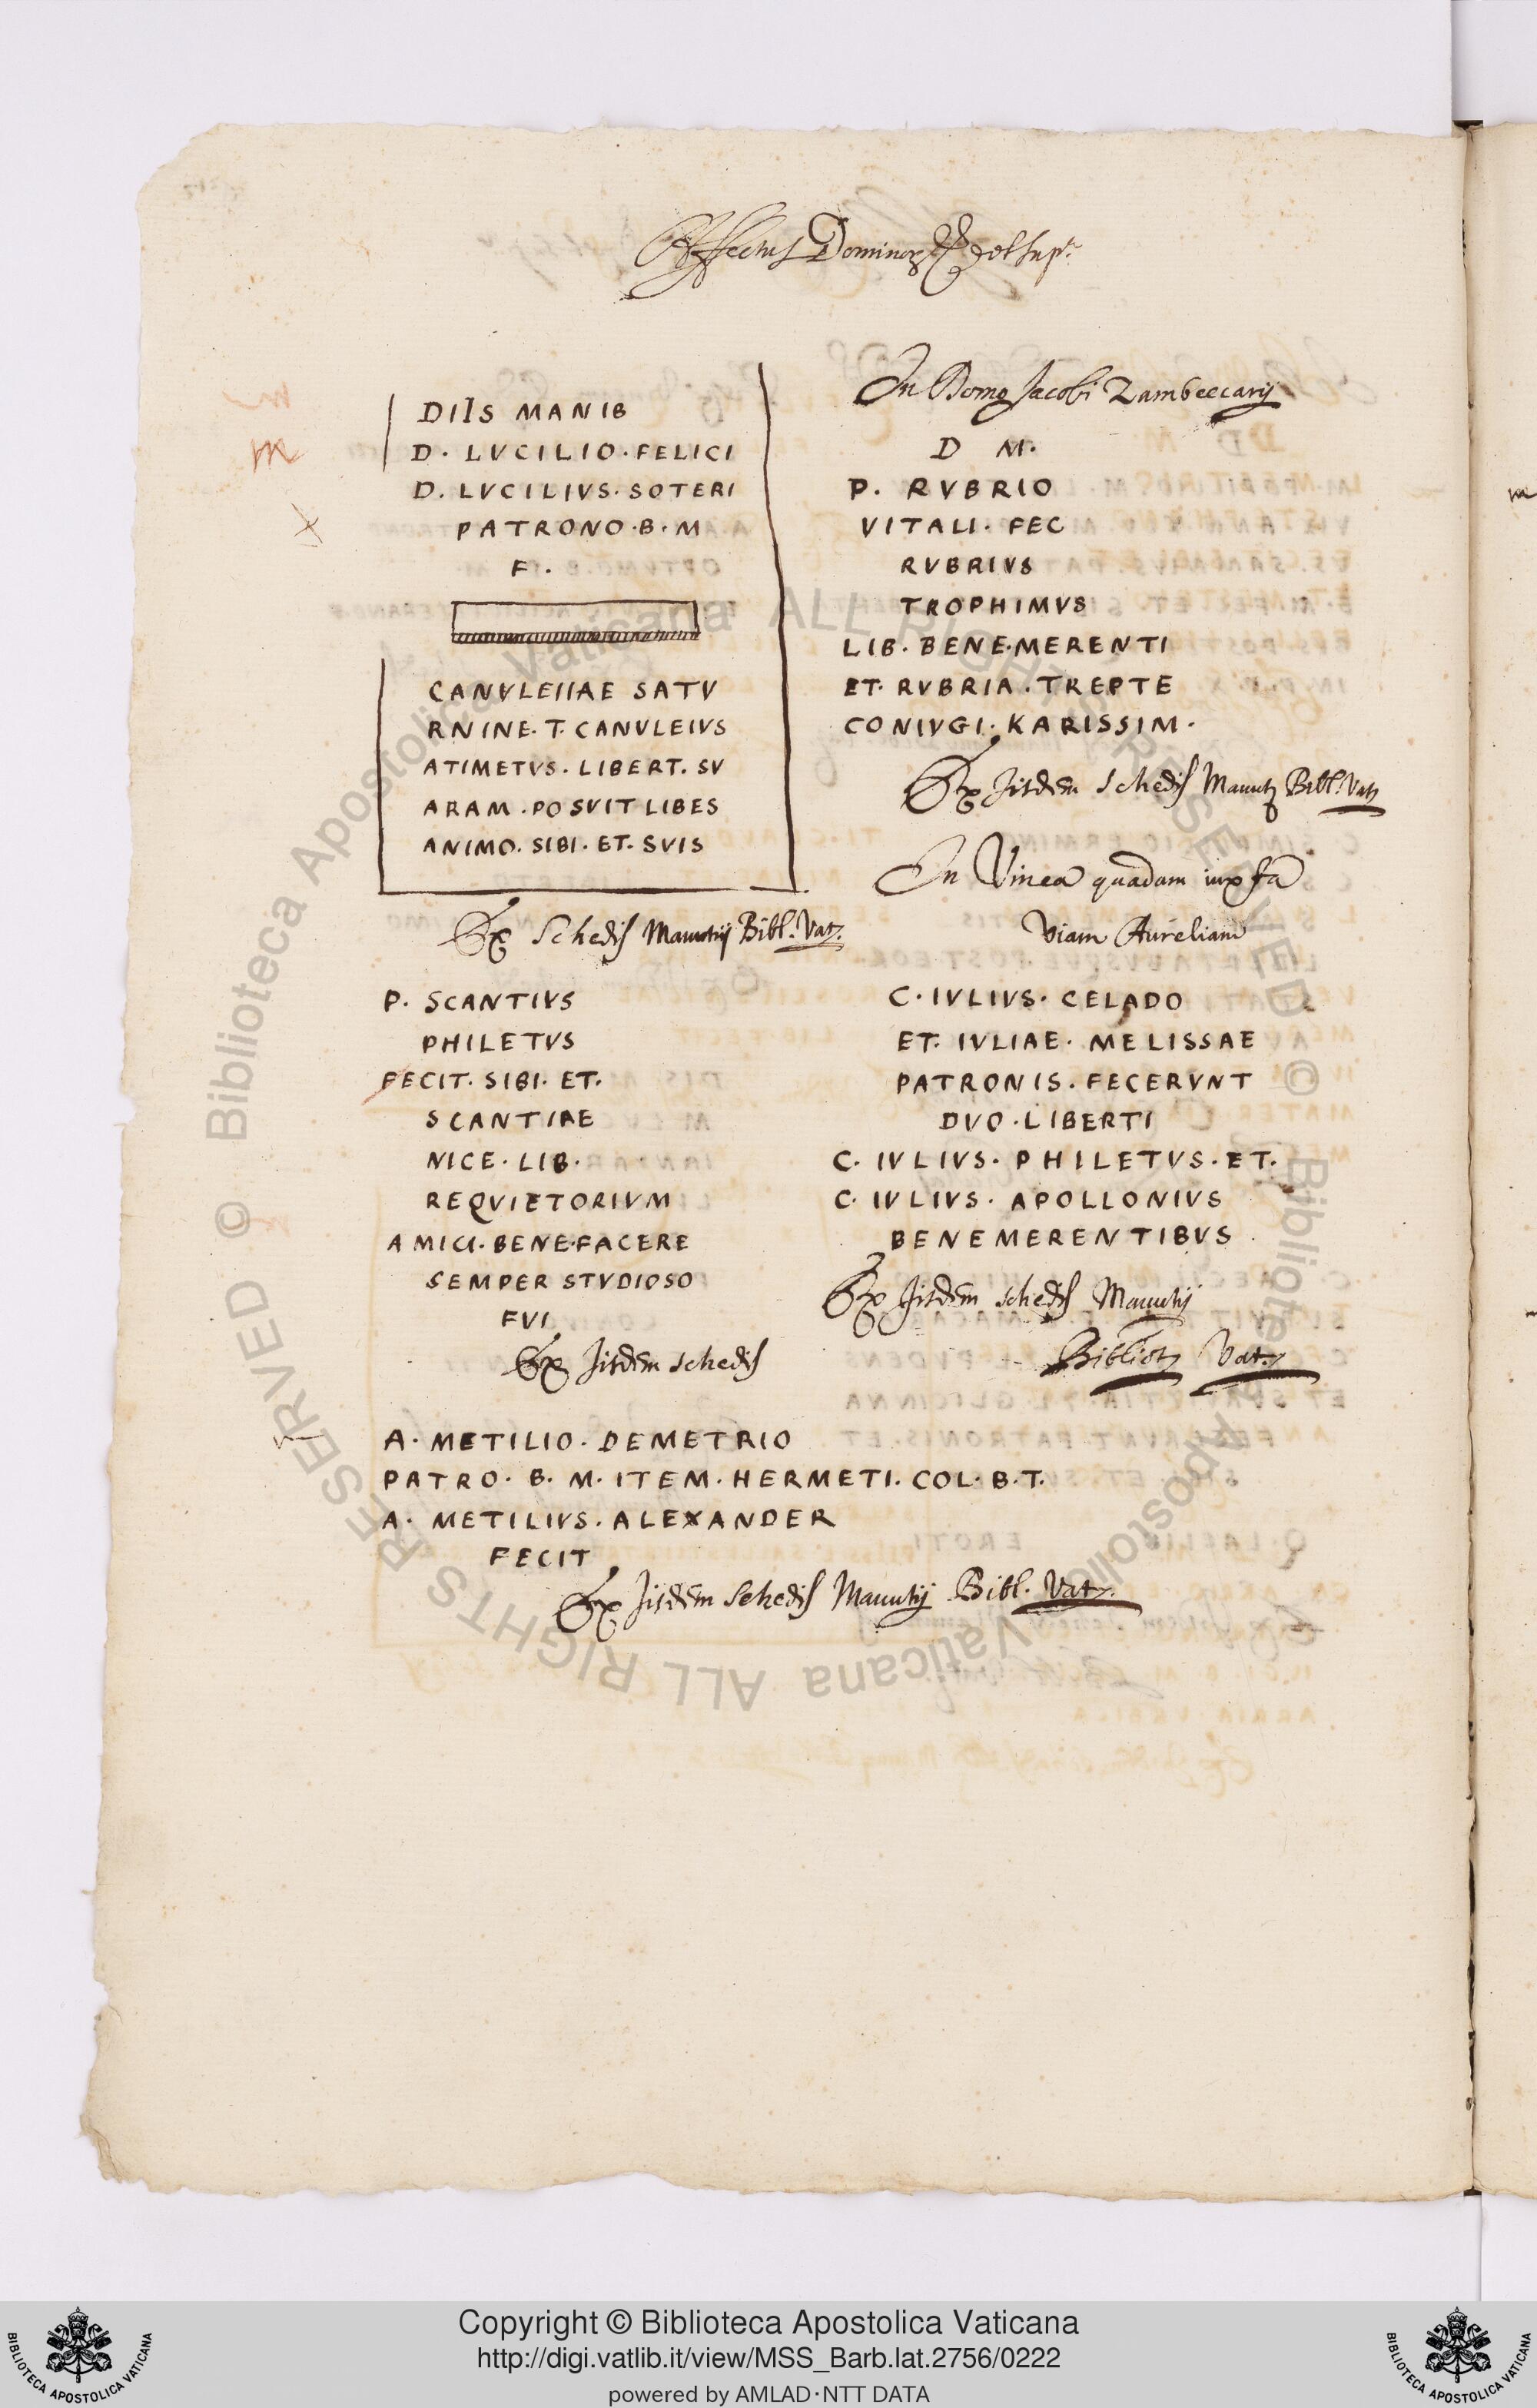 Affectus Dominor et
DIIS MANIB
D. LVCILIO. FELICI
D. LVCILIVS. SOTERI
PATRONO. B. M
F.
CANVLEIIAE SATV
RNINE. T. CANVLEIVS
ATIMETVS. LIBERT. SV
ARAM. POSVIT LIBES
ANIMO. SIBI. ET. SVIS
Ex Schedis Manutij Bibl. Vat.
P. SCANTIVS
PHILETVS
FECIT. SIBI. ET.
SCANTIAE
NICE. LIB.
REQVIETORIVM
AMICI. BENE. FACERE
SEMPER STVDIOSO
FVI
Ex Jisdem schedis
In Domo Jacobi Zambeccarij
D M.
P. RVBRIO
VITALI. FEC
RVBRIVS
TROPHIMVS
LIB. BENE. MERENTI
ET. RVBRIA. TREPTE
CONIVGI. KARISSIM.
Ex Jisdem schedis Manutij Bibl. Vat
In Vinea quadam iuxta
Viam Aureliam
C. IVLIVS. CELADO
ET. IVLIAE. MELISSAE
PATRONIS. FECERVNT
DVO. LIBERTI
C. IVLIVS. PHILETVS. ET.
C. IVLIVS. APOLLONIVS
BENEMERENTIBVS
Ex Jisdem schedis Manutij
Bibliot Vat.
A. METILIO. DEMETRIO
PATRO. B. M. ITEM. HERMETI. COL. B. T.
A. METILIVS. ALEXANDER
FECIT
Ex Jisdem schedis Manutij Bibl. Vat.
Biblioteca Apostolica Vaticana ALL RIGHTS RESERVED © Biblioteca Apostolica Vaticana ALL RIGHTS RESERVED ©
Copyright © Biblioteca Apostolica Vaticana
http://digi.vatlib.it/view/MSS_Barb.lat.2756/0222
powered by AMLAD·NTT DATA
BIBLIOTECA APOSTOLICA VATICANA
BIBLIOTECA APOSTOLICA VATICANA